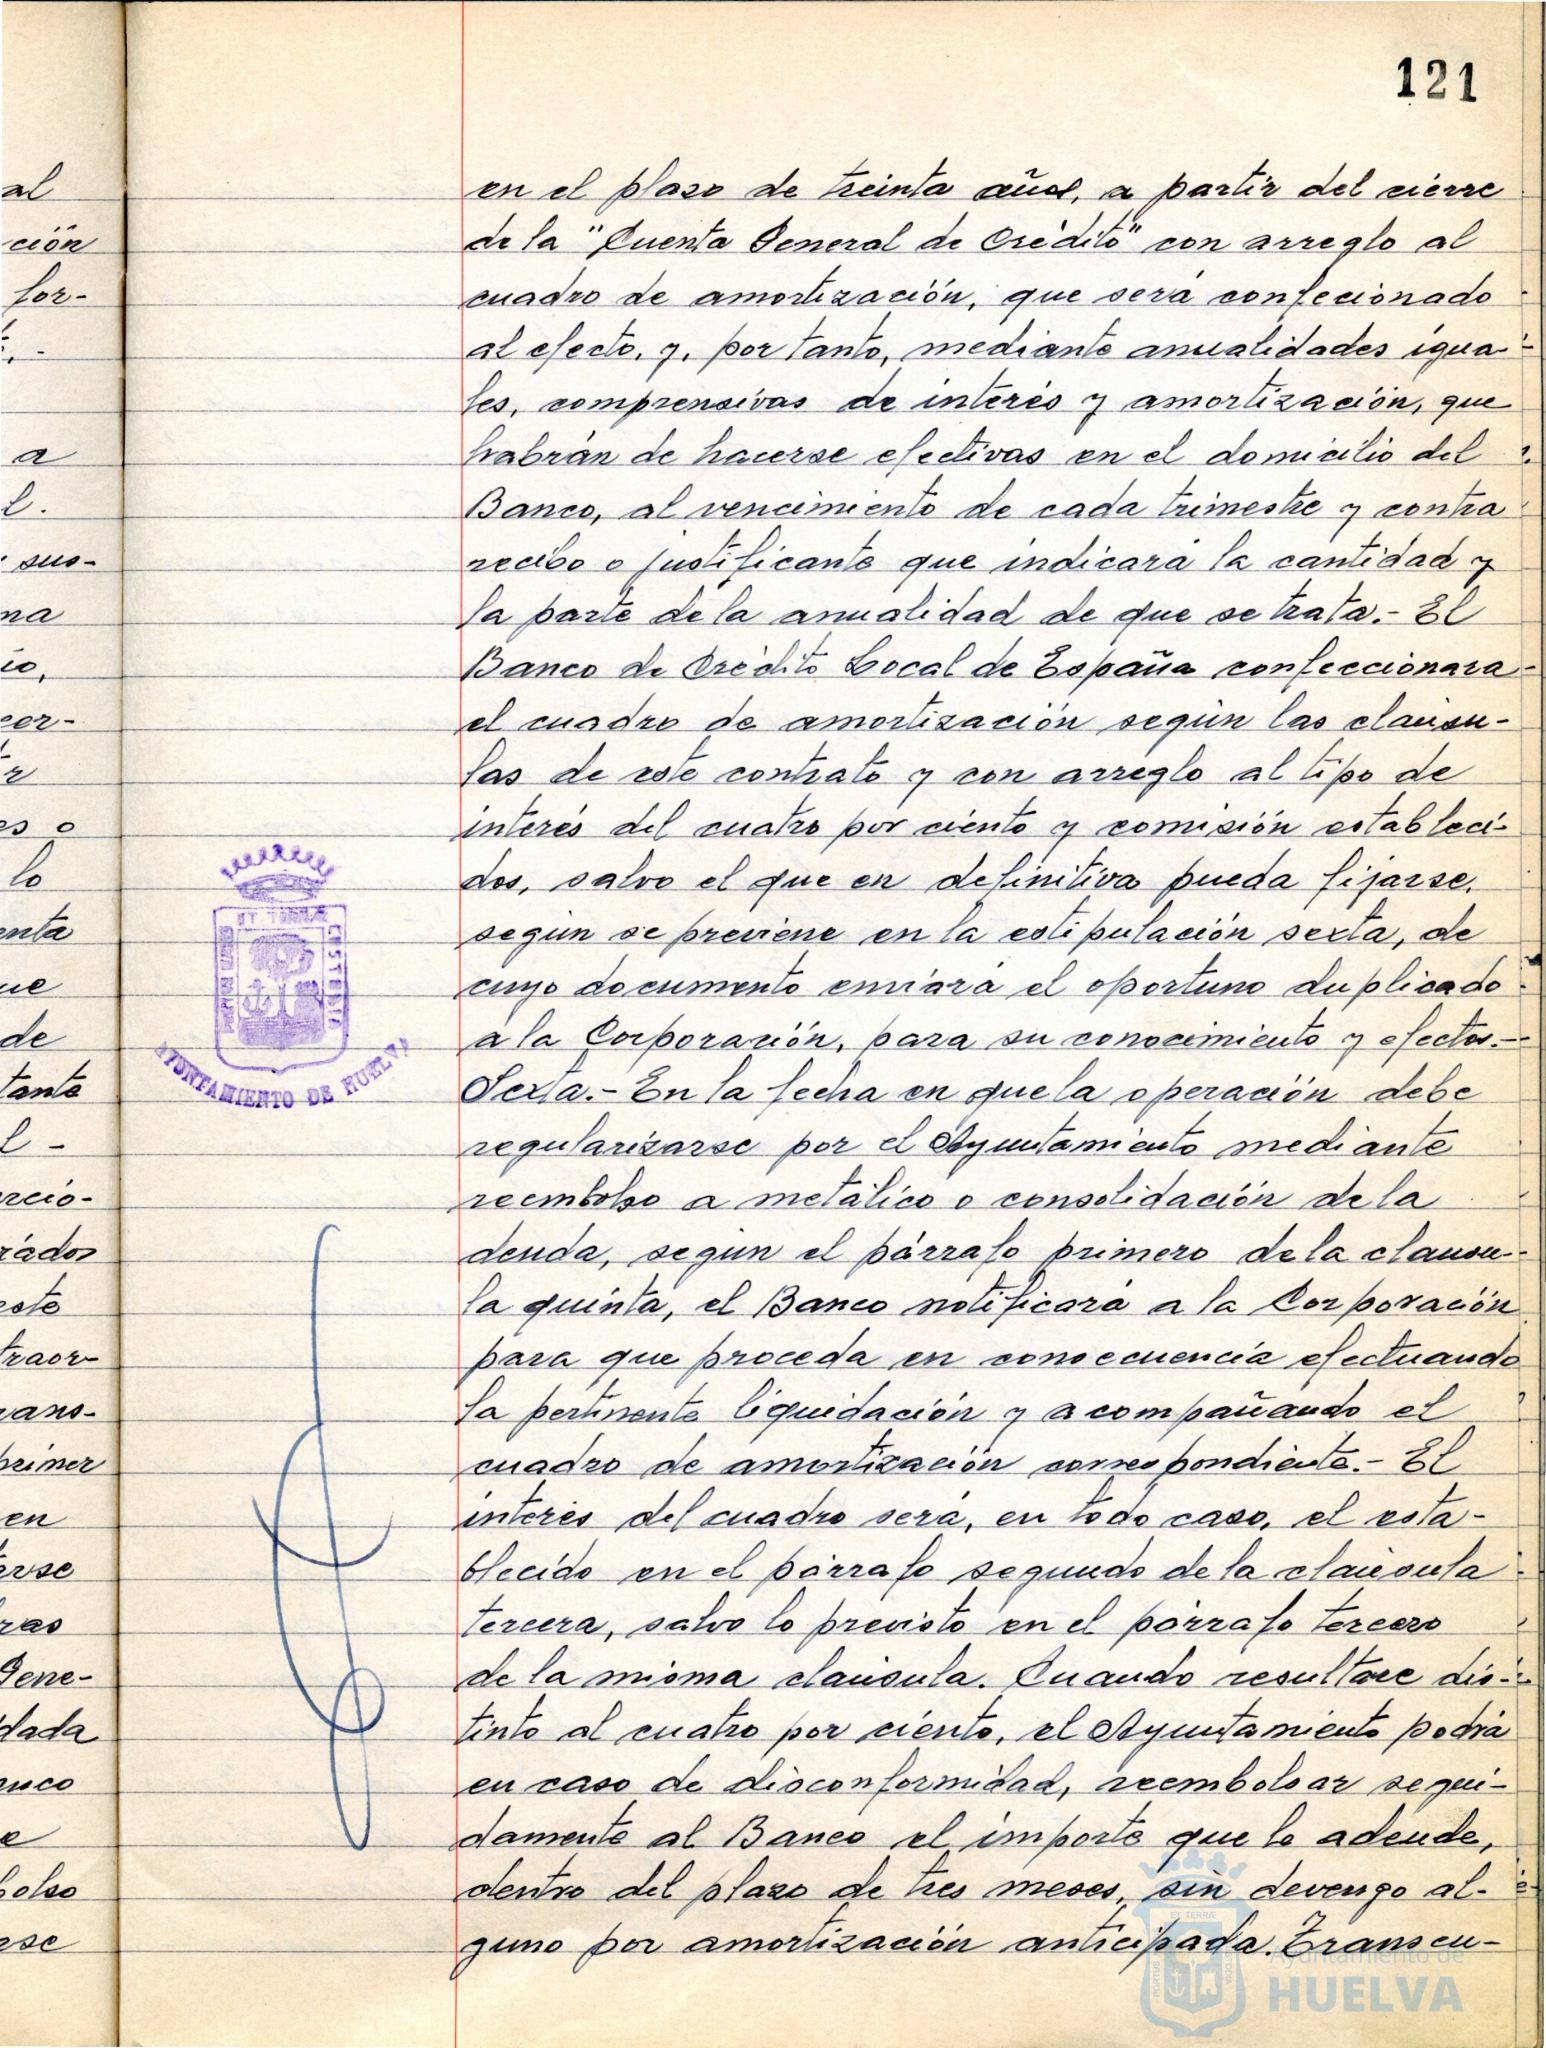 121
en el plazo de treinta años, a partir del cierre
de la "Cuenta General de Crédito" con arreglo al
cuadro de amortización, que será confecionado
al efecto, y, por tanto, mediante anualidades igua-
les, comprensivas de interés y amortización, que
habrán de hacerse efectivas en el domicilio del
Banco, al vencimiento de cada trimestre y contra
recibo o justificante que indicará la cantidad y
la parte de la anualidad de que se trata.- El
Banco de Crédito Local de España confeccionara
el cuadro de amortización según las cláusu-
las de este contrato y con arreglo al tipo de
interés del cuatro por ciento y comisión estableci-
dos, salvo el que en definitiva pueda fijarse,
según se previene en la estipulación sexta, de
cuyo documento enviará el oportuno duplicado
a la Corporación, para su conocimiento y efectos.-
Sexta.- En la fecha en que la operación debe
regularizarse por el Ayuntamiento mediante
reembolso a metálico o consolidación de la
deuda, según el párrafo primero de la clausu-
la quinta, el Banco notificará a la Corporación
para que proceda en consecuencia efectuando
la pertinente liquidación y acompañando el
cuadro de amortización correspondiente.- El
interés del cuadro será, en todo caso, el esta-
blecido en el párrafo segundo de la cláusula
tercera, salvo lo previsto en el párrafo tercero
de la misma cláusula. Cuando resultare dis-
tinto al cuatro por ciento, el Ayuntamiento podrá
en caso de disconformidad, reembolsar segui-
damente al Banco el importe que le adeude,
dentro del plazo de tres meses, sin devengo al-
guno por amortización anticipada. Transcu-
al
ción
for-
a
l.
sus-
na
io,
cer-
r
es o
lo
enta
ue
de
tante
l -
rcio-
rados
este
traor-
rans-
primer
en
erse
ras
Gene-
dada
nco
e
bolso
rse
ET TERRÆ
CUSTODIA
AYUNTAMIENTO DE HUELVA
Ayuntamiento de
HUELVA